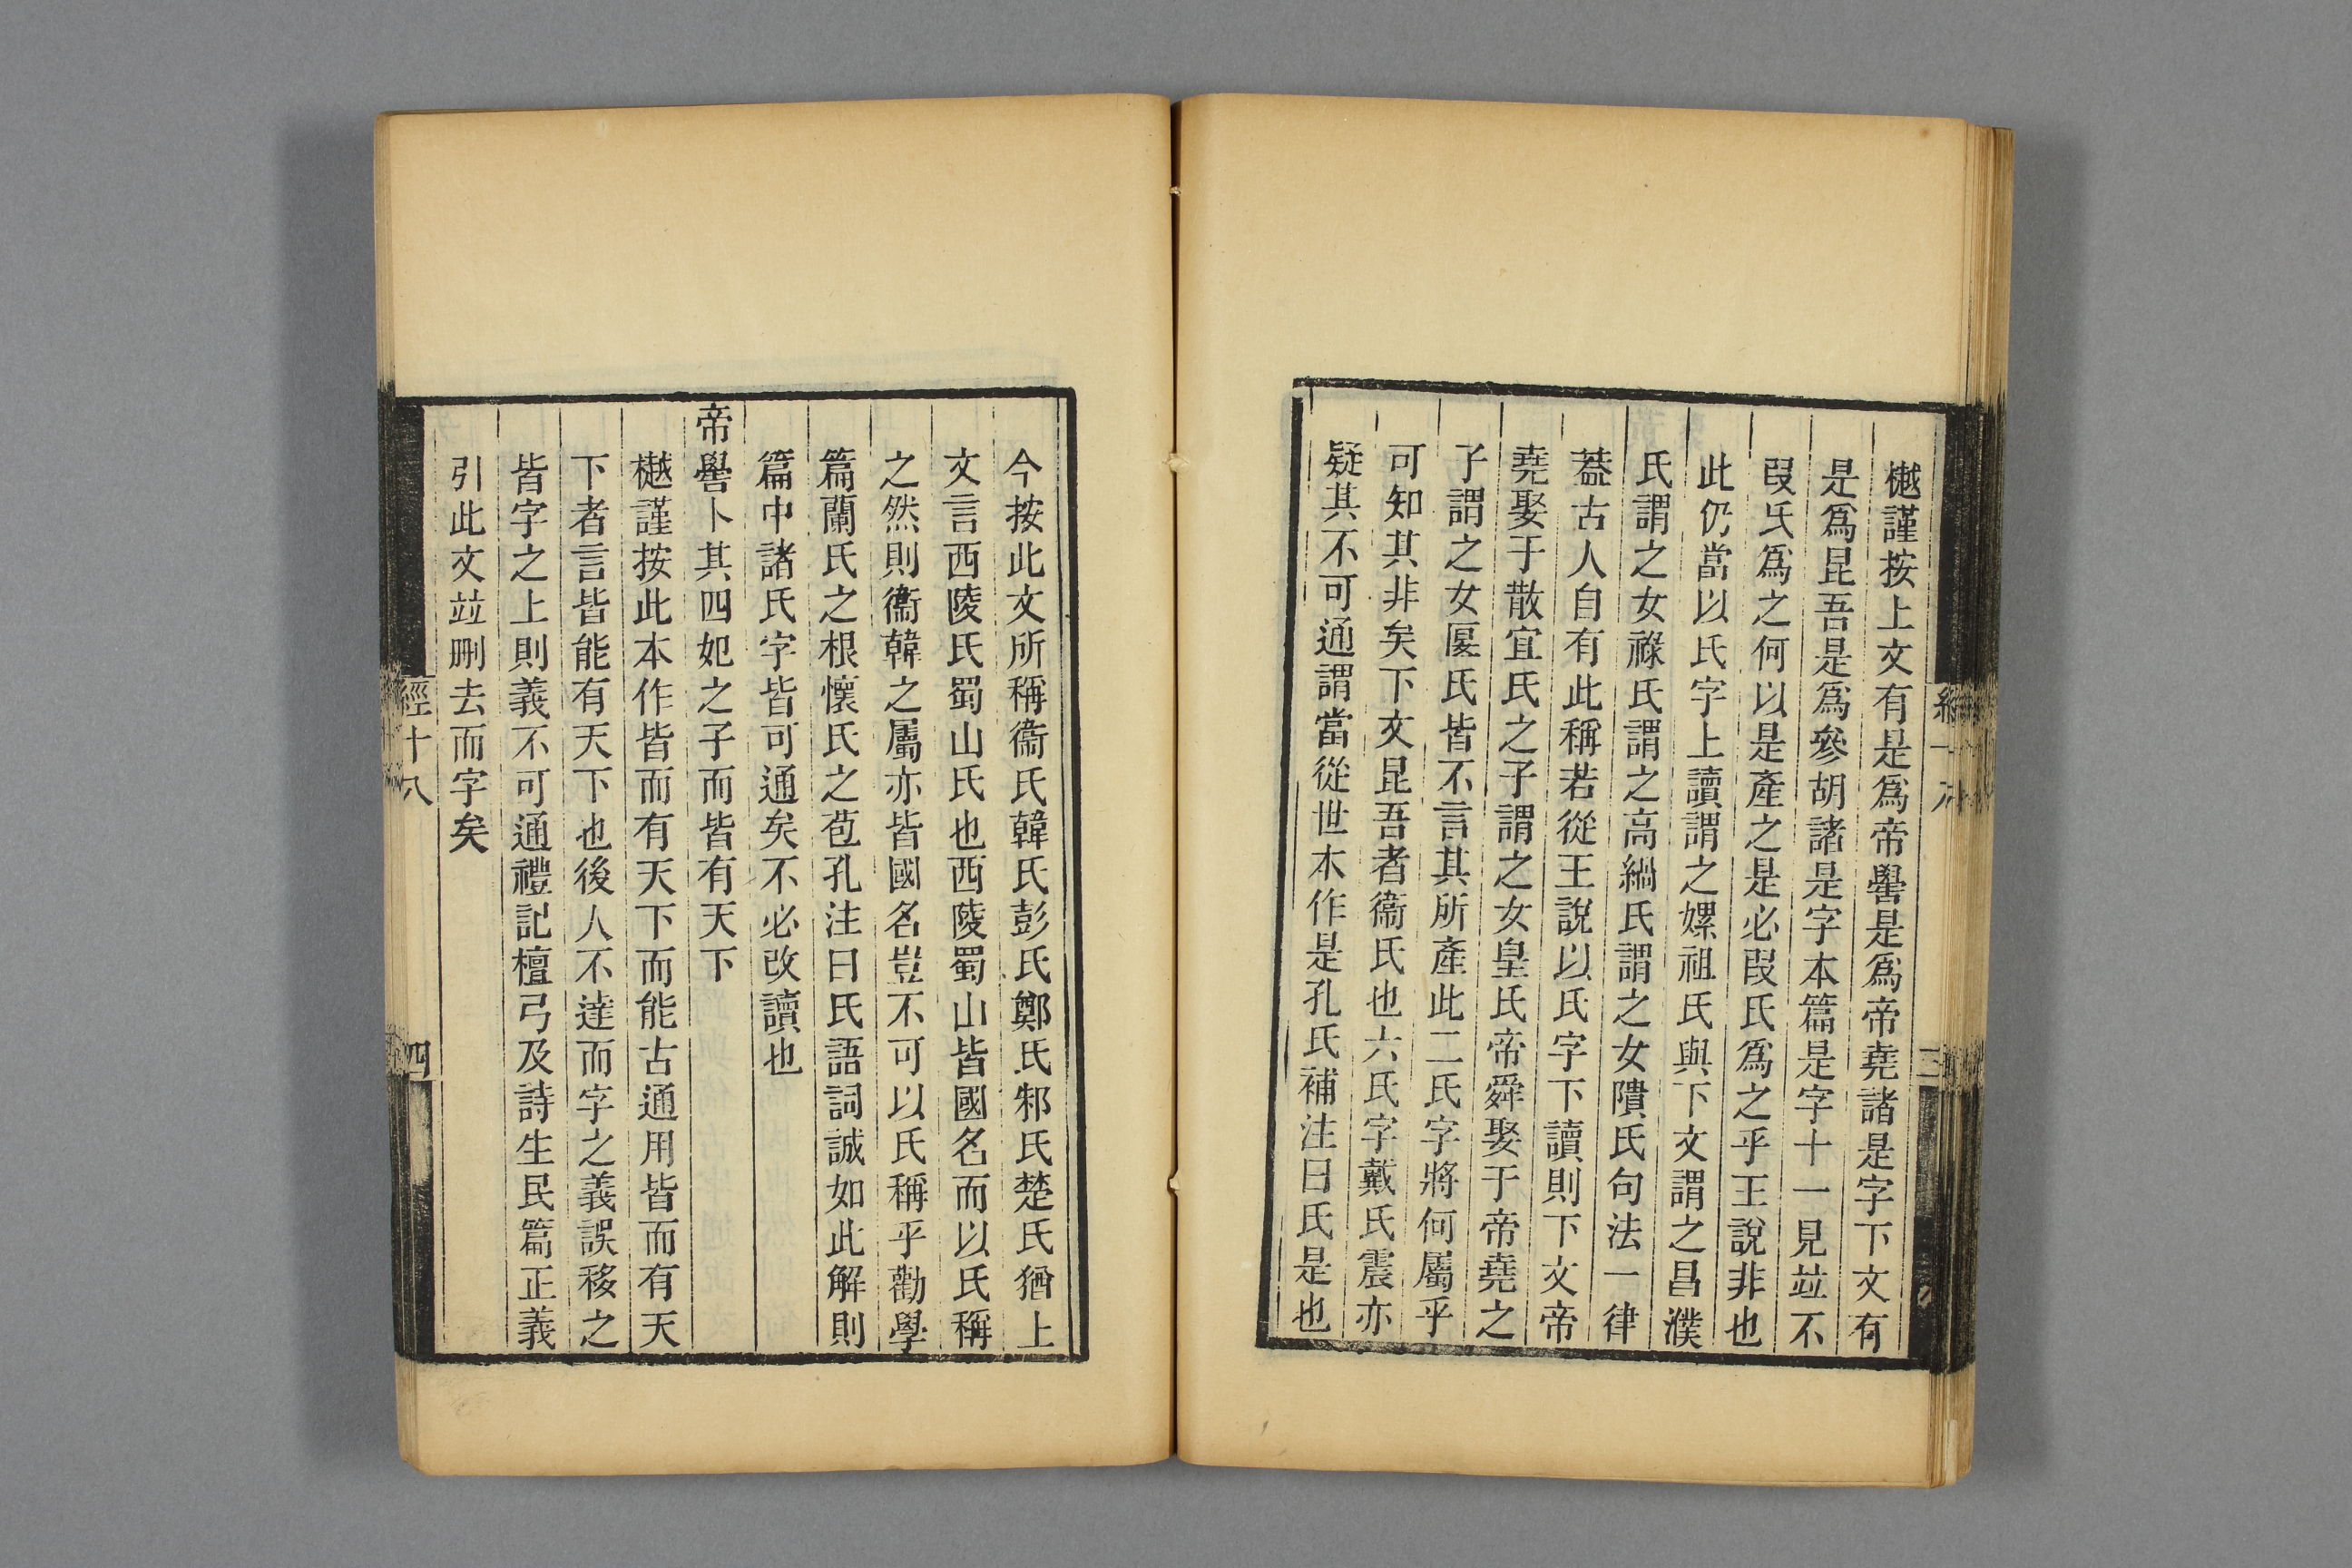 樾謹按上文有是爲帝嚳是爲帝堯諸是字下文有
是爲昆吾是爲參胡諸是字本篇是字十一見竝不
叚氏爲之何以是產之是必叚氏爲之乎王說非也
此仍當以氏字上讀謂之嫘祖氏與下文謂之昌濮
氏謂之女祿氏謂之高緺氏謂之女隤氏句法一律
葢古人自有此稱若從王說以氏字下讀則下文帝
堯娶于散宜氏之子謂之女皇氏帝舜娶于帝堯之
子謂之女匽氏皆不言其所產此二氏字將何屬乎
可知其非矣下文昆吾者衞氏也六氏字戴氏震亦
疑其不可通謂當從世本作是孔氏補注曰氏是也
今按此文所稱衞氏韓氏彭氏鄭氏邾氏楚氏猶上
文言西陵氏蜀山氏也西陵蜀山皆國名而以氏稱
之然則衞韓之屬亦皆國名豈不可以氏稱乎勸學
篇蘭氏之根懷氏之苞孔注曰氏語詞誠如此解則
篇中諸氏字皆可通矣不必改讀也
帝嚳卜其四妃之子而皆有天下
樾謹按此本作皆而有天下而能古通用皆而有天
下者言皆能有天下也後人不達而字之義誤移之
皆字之上則義不可通禮記檀弓及詩生民篇正義
引此文竝刪去而字矣
經十八
四
三